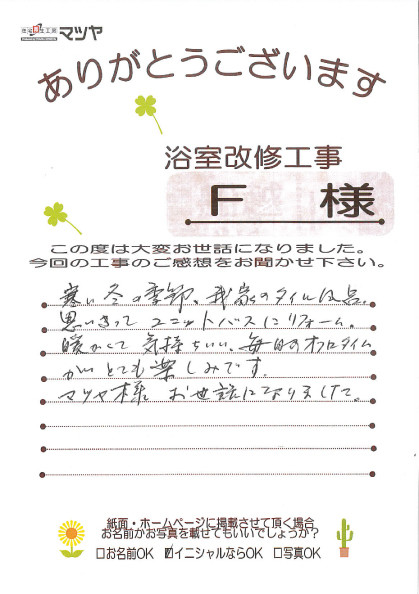 住宅再生工房 マツヤ
ありがとうございます
浴室改修工事
F 様
この度は大変お世話になりました。
今回の工事のご感想をお聞かせ下さい。
寒い冬の季節、我家のタイル
思いきって ユニットバスにリフォーム。
暖かくて 気持ちいい、毎日のオフロタイム
がとても楽しみです。
マツヤ様 お世話になりまして。
紙面・ホームページに掲載させて頂く場合
お名前かお写真を載せてもいいでしょうか?
□お名前OK ☑イニシャルならOK □写真OK